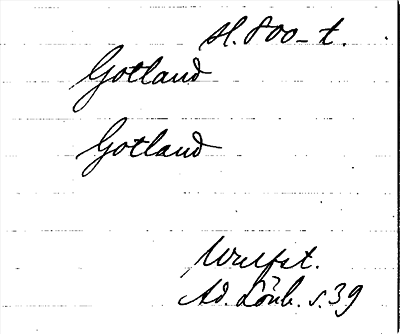 sl. 800-t.
Gotland
Gotland
Wulfst.
Ad. Lönb. s. 39